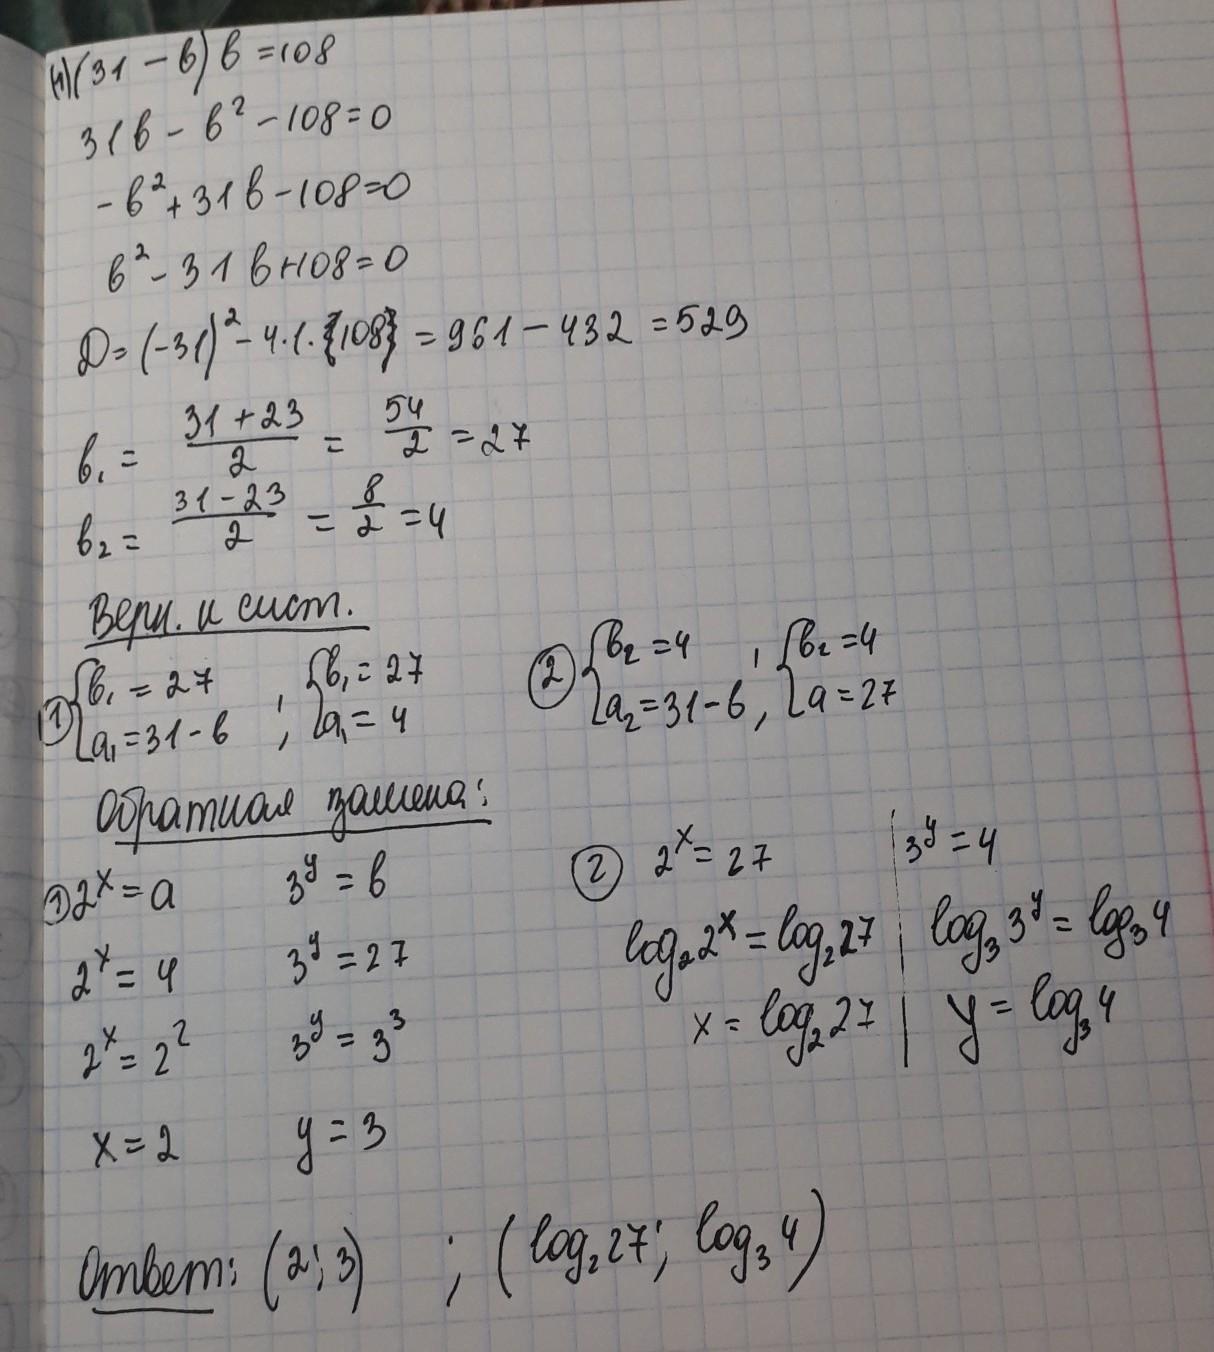 (н)(31 - в) в = 108
31в - в² - 108 = 0
-в² + 31в - 108 = 0
в² - 31в + 108 = 0
Д = (-31)² - 4·1·{108} = 961 - 432 = 529
в₁ = (31 + 23)/2 = 54/2 = 27
в₂ = (31 - 23)/2 = 8/2 = 4
Верн. к сист.
① { в₁ = 27 ; { в₁ = 27
a₁ = 31 - в ; a₁ = 4
② { в₂ = 4 , { в₂ = 4
a₂ = 31 - в , a = 27
Обратная замена:
① 2ˣ = a 3ʸ = в
2ˣ = 4 3ʸ = 27
2ˣ = 2² 3ʸ = 3³
x = 2 y = 3
② 2ˣ = 27 | 3ʸ = 4
log₂ 2ˣ = log₂ 27 | log₃ 3ʸ = log₃ 4
x = log₂ 27 | y = log₃ 4
Ответ: (2; 3) ; (log₂ 27; log₃ 4)